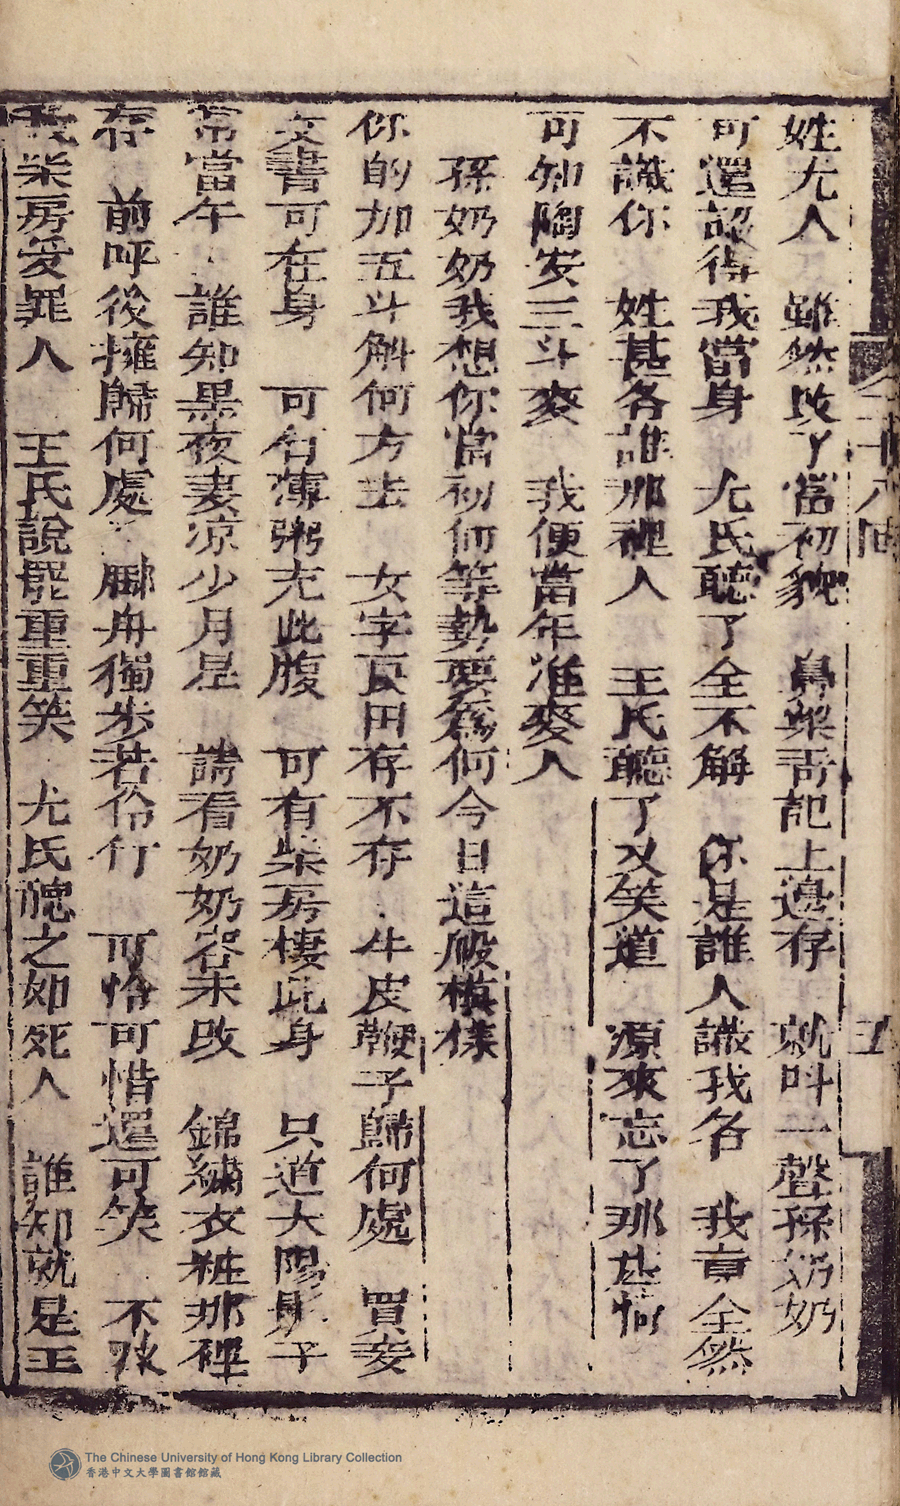 二十八回
五
姓尤人 雖然改了當初貌 鼻梁青記上邊存 就叫一聲孫奶奶
可還認得我當身 尤氏聽了全不解 你是誰人識我名 我竟全然
不識你 姓甚名誰那裡人 王氏聽了又笑道 源來忘了那些情
可知陶安三斗麥 我便當年准麥人
孫奶奶我想你當初何等勢要爲何今日這般模樣
你的加五斗斛何方去 女字良田存不存 牛皮鞭子歸何處 買妾
文書可在身 可名薄粥充此腹 可有柴房棲此身 只道大陽影子
常當午 誰知黑夜妻凉少月星 請看奶奶容未改 錦繡衣粧那裡
存 前呼後擁歸何處 脚舟獨步若伶仃 可恰可惜還可笑 不孩
我柴房受罪人 王氏說罷重重笑 尤氏聽之如死人 誰知就是王
The Chinese University of Hong Kong Library Collection
香港中文大學圖書館館藏